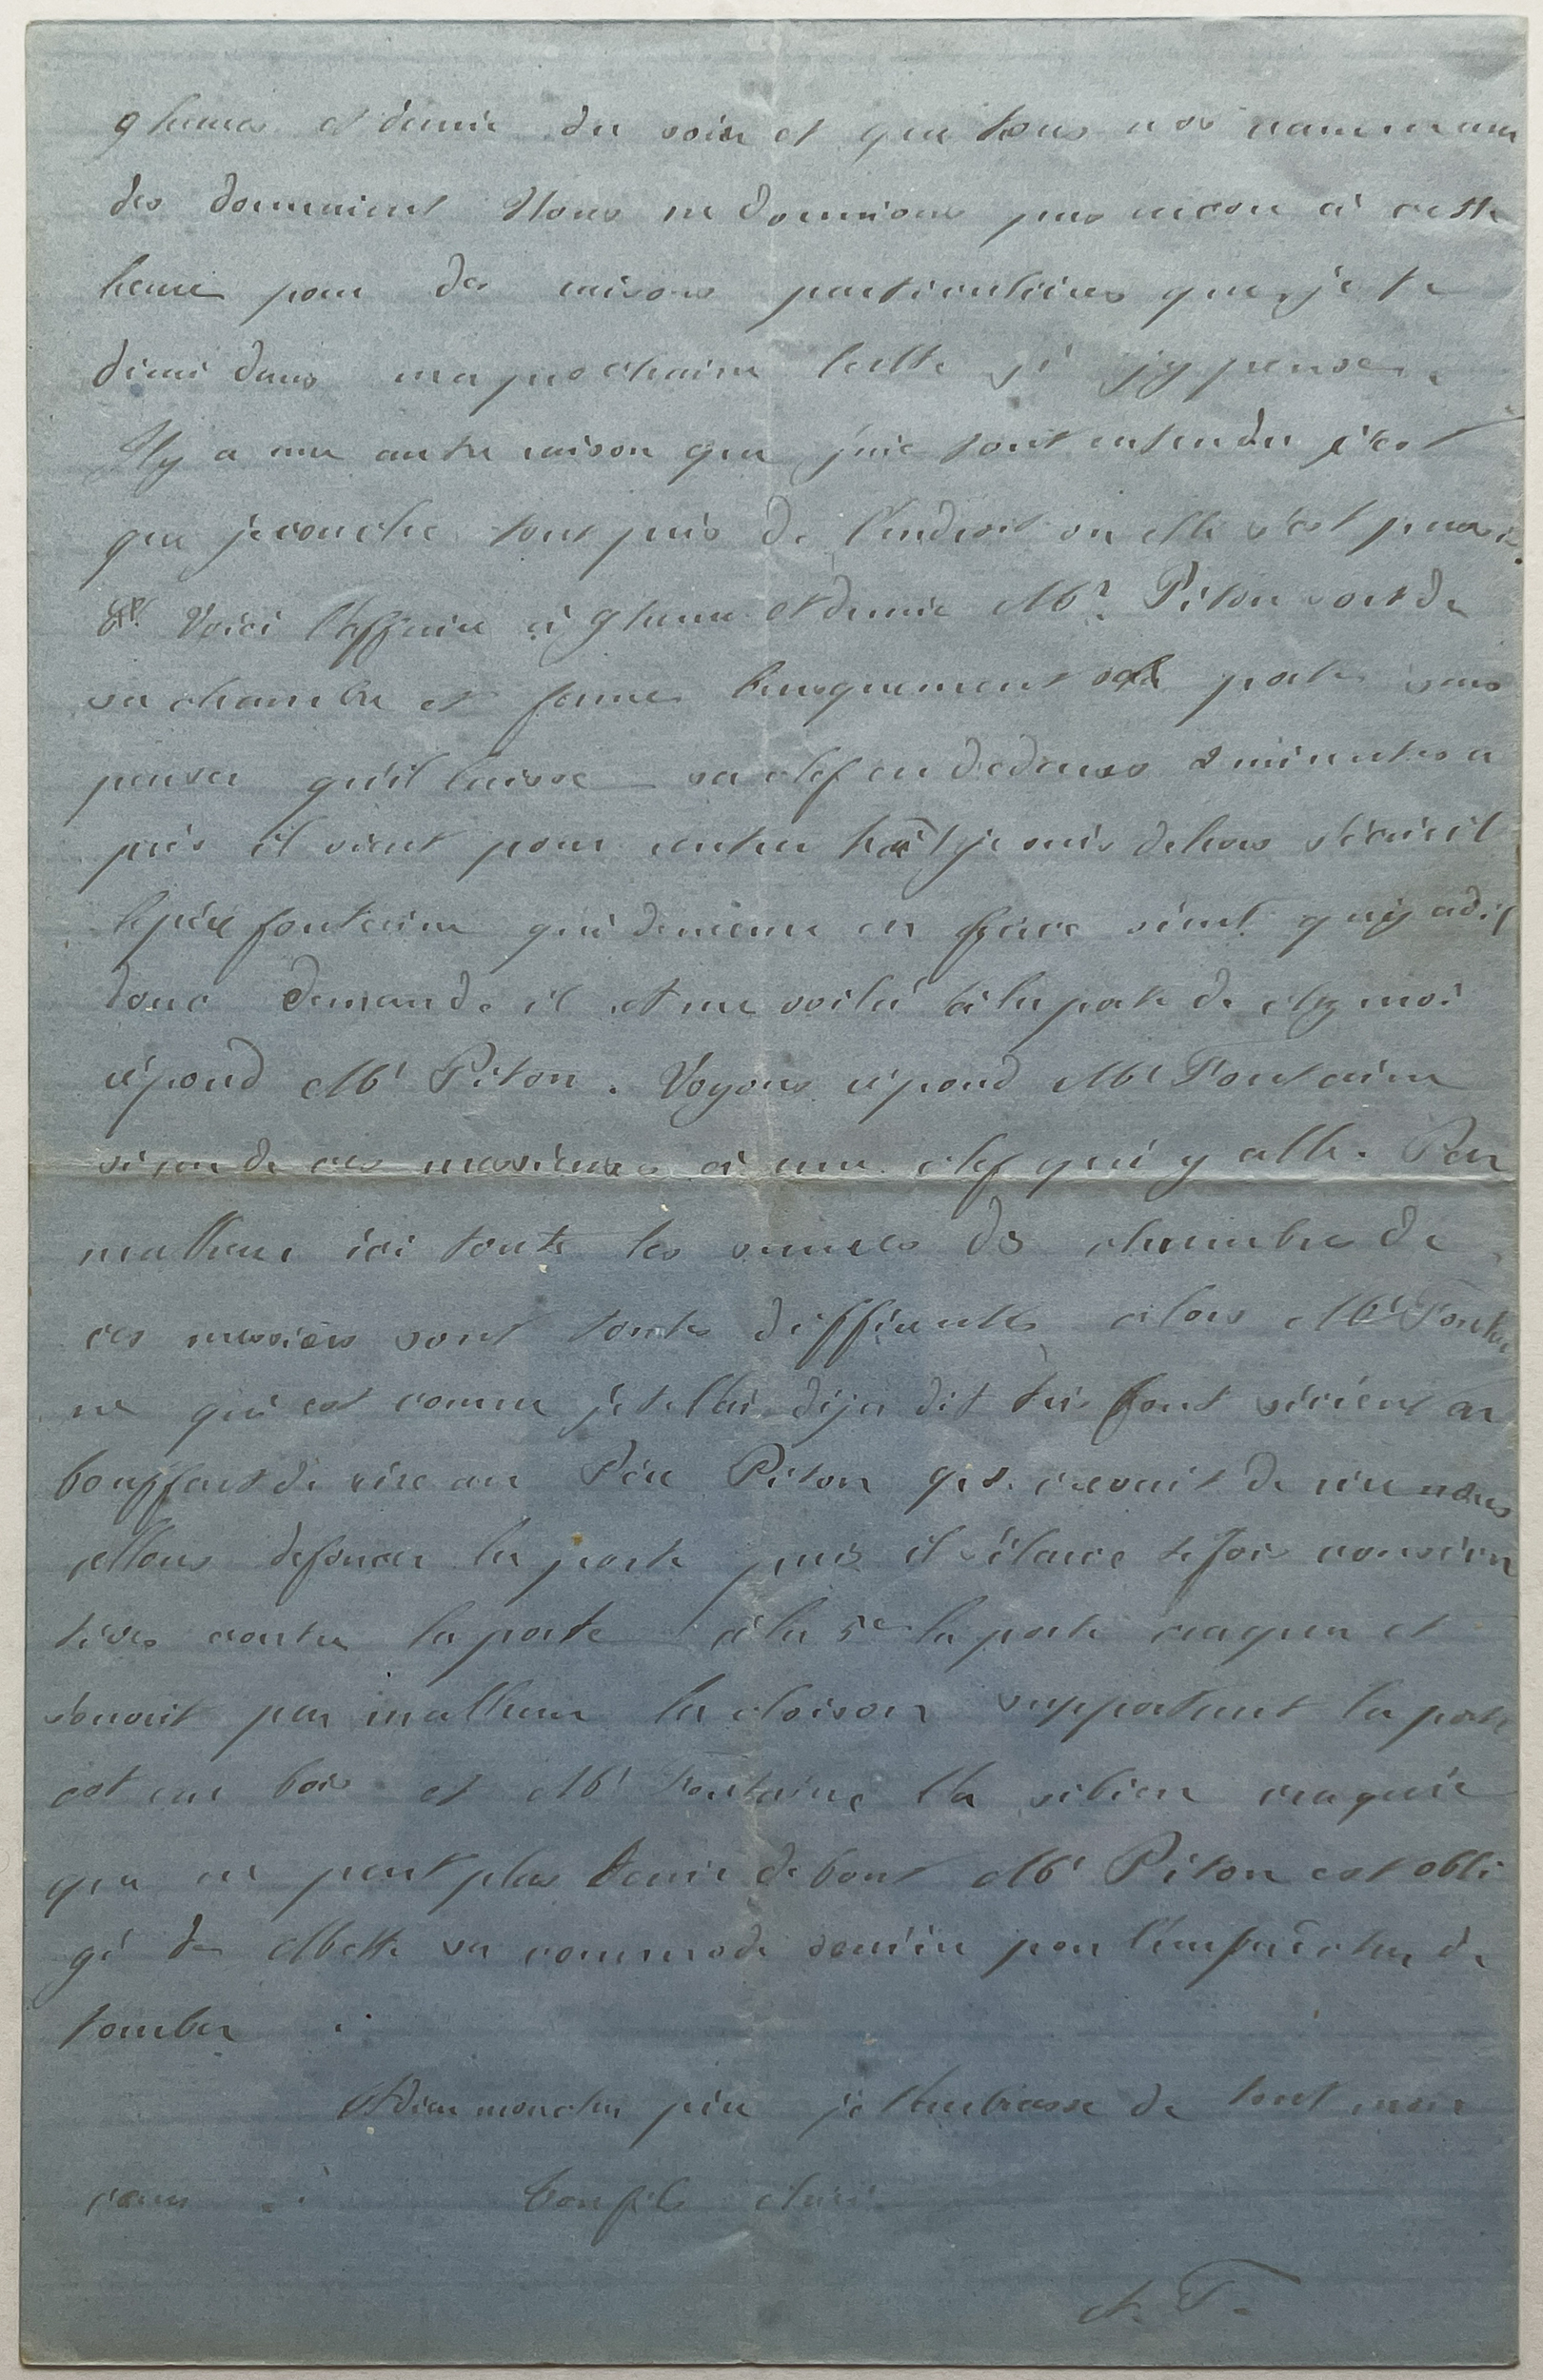 9 heures et demie du soir et que tous nos
des dormaient Nous ne dormions pas encore à cette
heure pour des raisons particulières que je te
dirai dans ma prochaine lettre si j'y pense.
Il y a une autre raison que j'aie tout entendu c'est
que je couche tout près de l'endroit ou elle s'est passée.
Voici l'affaire à 9 heure et demie Mr. Piton sort de
sa chambre et ferme brusquement sa porte sans
penser qu'il laisse sa clef en dedans 2 minutes a
près il vient pour entrer je suis dehors s'écrie il
le père fontaine qui demeure en face sort qu'y a d'il
donc demande il et me voilà à la porte de chez moi
répond Mr Piton. Voyons répond Mr Fontaine
si un de ces messieurs a une clef qui y aille. Par
malheur ici toute les serrures des chambres de
ces messieurs sont toutes différentes alors Mr Fontai
ne qui est comme je te l'ai déja dit très fort s'écrie en
bouffant de rire au Père Piton qui crevait de rire nous
allons defoncer la porte puis il s'élance 4 fois consécu
tives contre la porte à la 5e la porte craque et
s'ouvrit par malheur la cloison supportant la porte
est en bois et Mr Fontaine l'a si bien craquée
que ne peut plus tenir debout Mr Piton est obli
gé de Mettre sa commode derrière pour l'empêcher de
tomber.
Adieu mon cher père je t'embrasse de tout mon
cœur. Ton fils chéri
A. T.